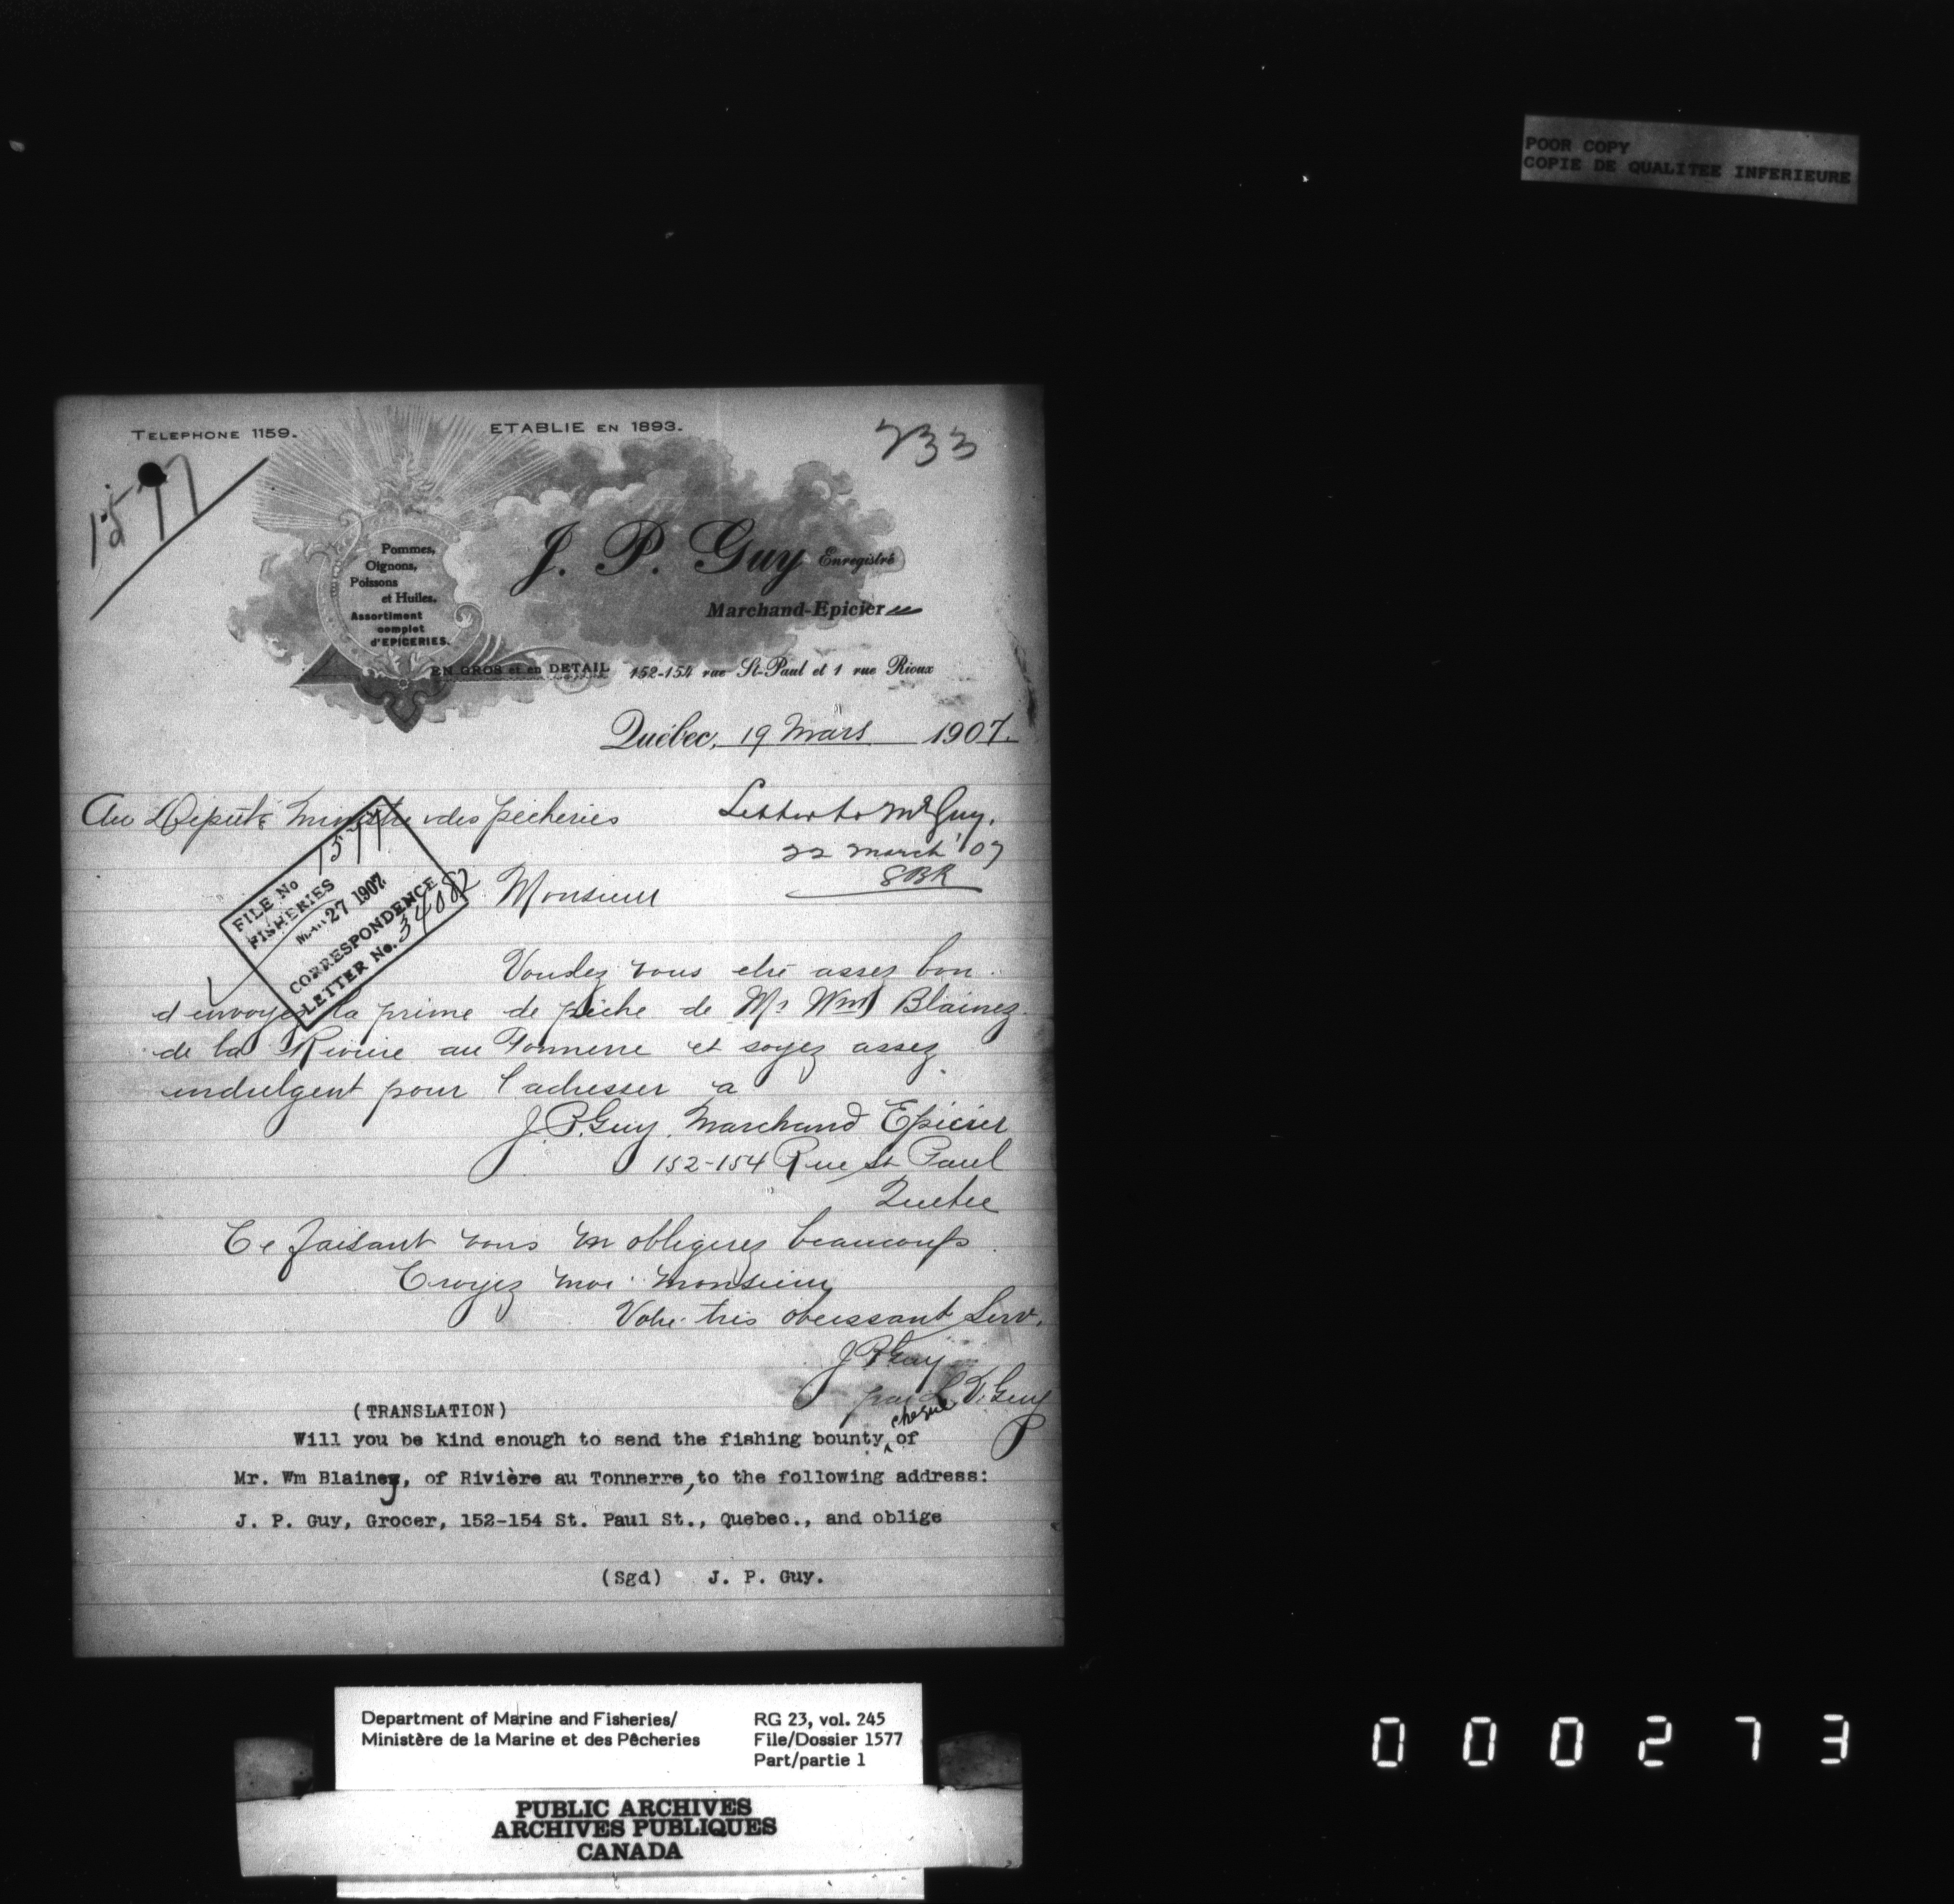 POOR COPY
COPIE DE QUALITEE INFERIEURE
TELEPHONE 1159.
ETABLIE EN 1893.
233
1577
Pommes,
Oignons,
Poissons
et Huiles.
Assortiment
complet
d'EPICERIES.
J. P. Guy Enregistré
Marchand-Epicier
EN GROS et en DETAIL 152-154 rue St-Paul et 1 rue Rioux
Québec, 19 Mars 1907.
Au Député ministre des pecheries
Letter to Mr Guy.
22 March '07
SBR
FILE No 1577
FISHERIES
MAR 27 1907
CORRESPONDENCE
LETTER No. 34082
Monsieur
Voudez vous etre assez bon
d envoyer la prime de pêche de Mr Wm Blainez
de la Riviere au Tonnerre et soyez assez
indulgent pour l'adresser a
J. P. Guy. Marchand Epicier
152-154 Rue St Paul
Quebec
Ce faisant vous m obligerez beaucoup.
Croyez moi monsieur
Votre très obeissant Serv.
J P Guy
par L. D. Guy
(TRANSLATION)
Will you be kind enough to send the fishing bounty cheque of
Mr. Wm Blainey, of Rivière au Tonnerre, to the following address:
J. P. Guy, Grocer, 152-154 St. Paul St., Quebec., and oblige
(Sgd) J. P. Guy.
Department of Marine and Fisheries/
Ministère de la Marine et des Pêcheries
RG 23, vol. 245
File/Dossier 1577
Part/partie 1
PUBLIC ARCHIVES
ARCHIVES PUBLIQUES
CANADA
000273